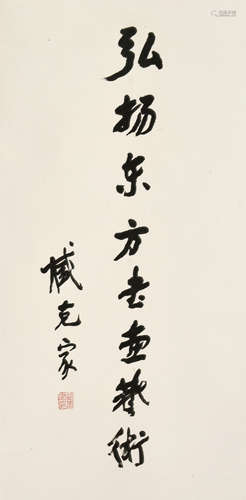 弘扬东方书画艺術
臧克家